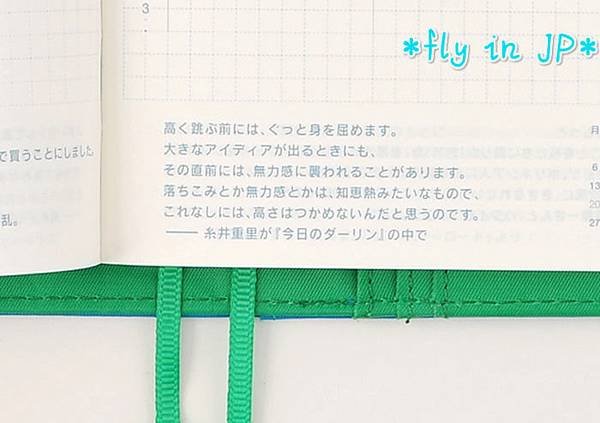 *fly in JP*
3
高く跳ぶ前には、ぐっと身を屈めます。
大きなアイディアが出るときにも、
その直前には、無力感に襲われることがあります。
落ちこみとか無力感とかは、知恵熱みたいなもので、
これなしには、高さはつかめないんだと思うのです。
―― 糸井重里が『今日のダーリン』の中で
で買うことにしました。
乱。
月
6
13
20
27